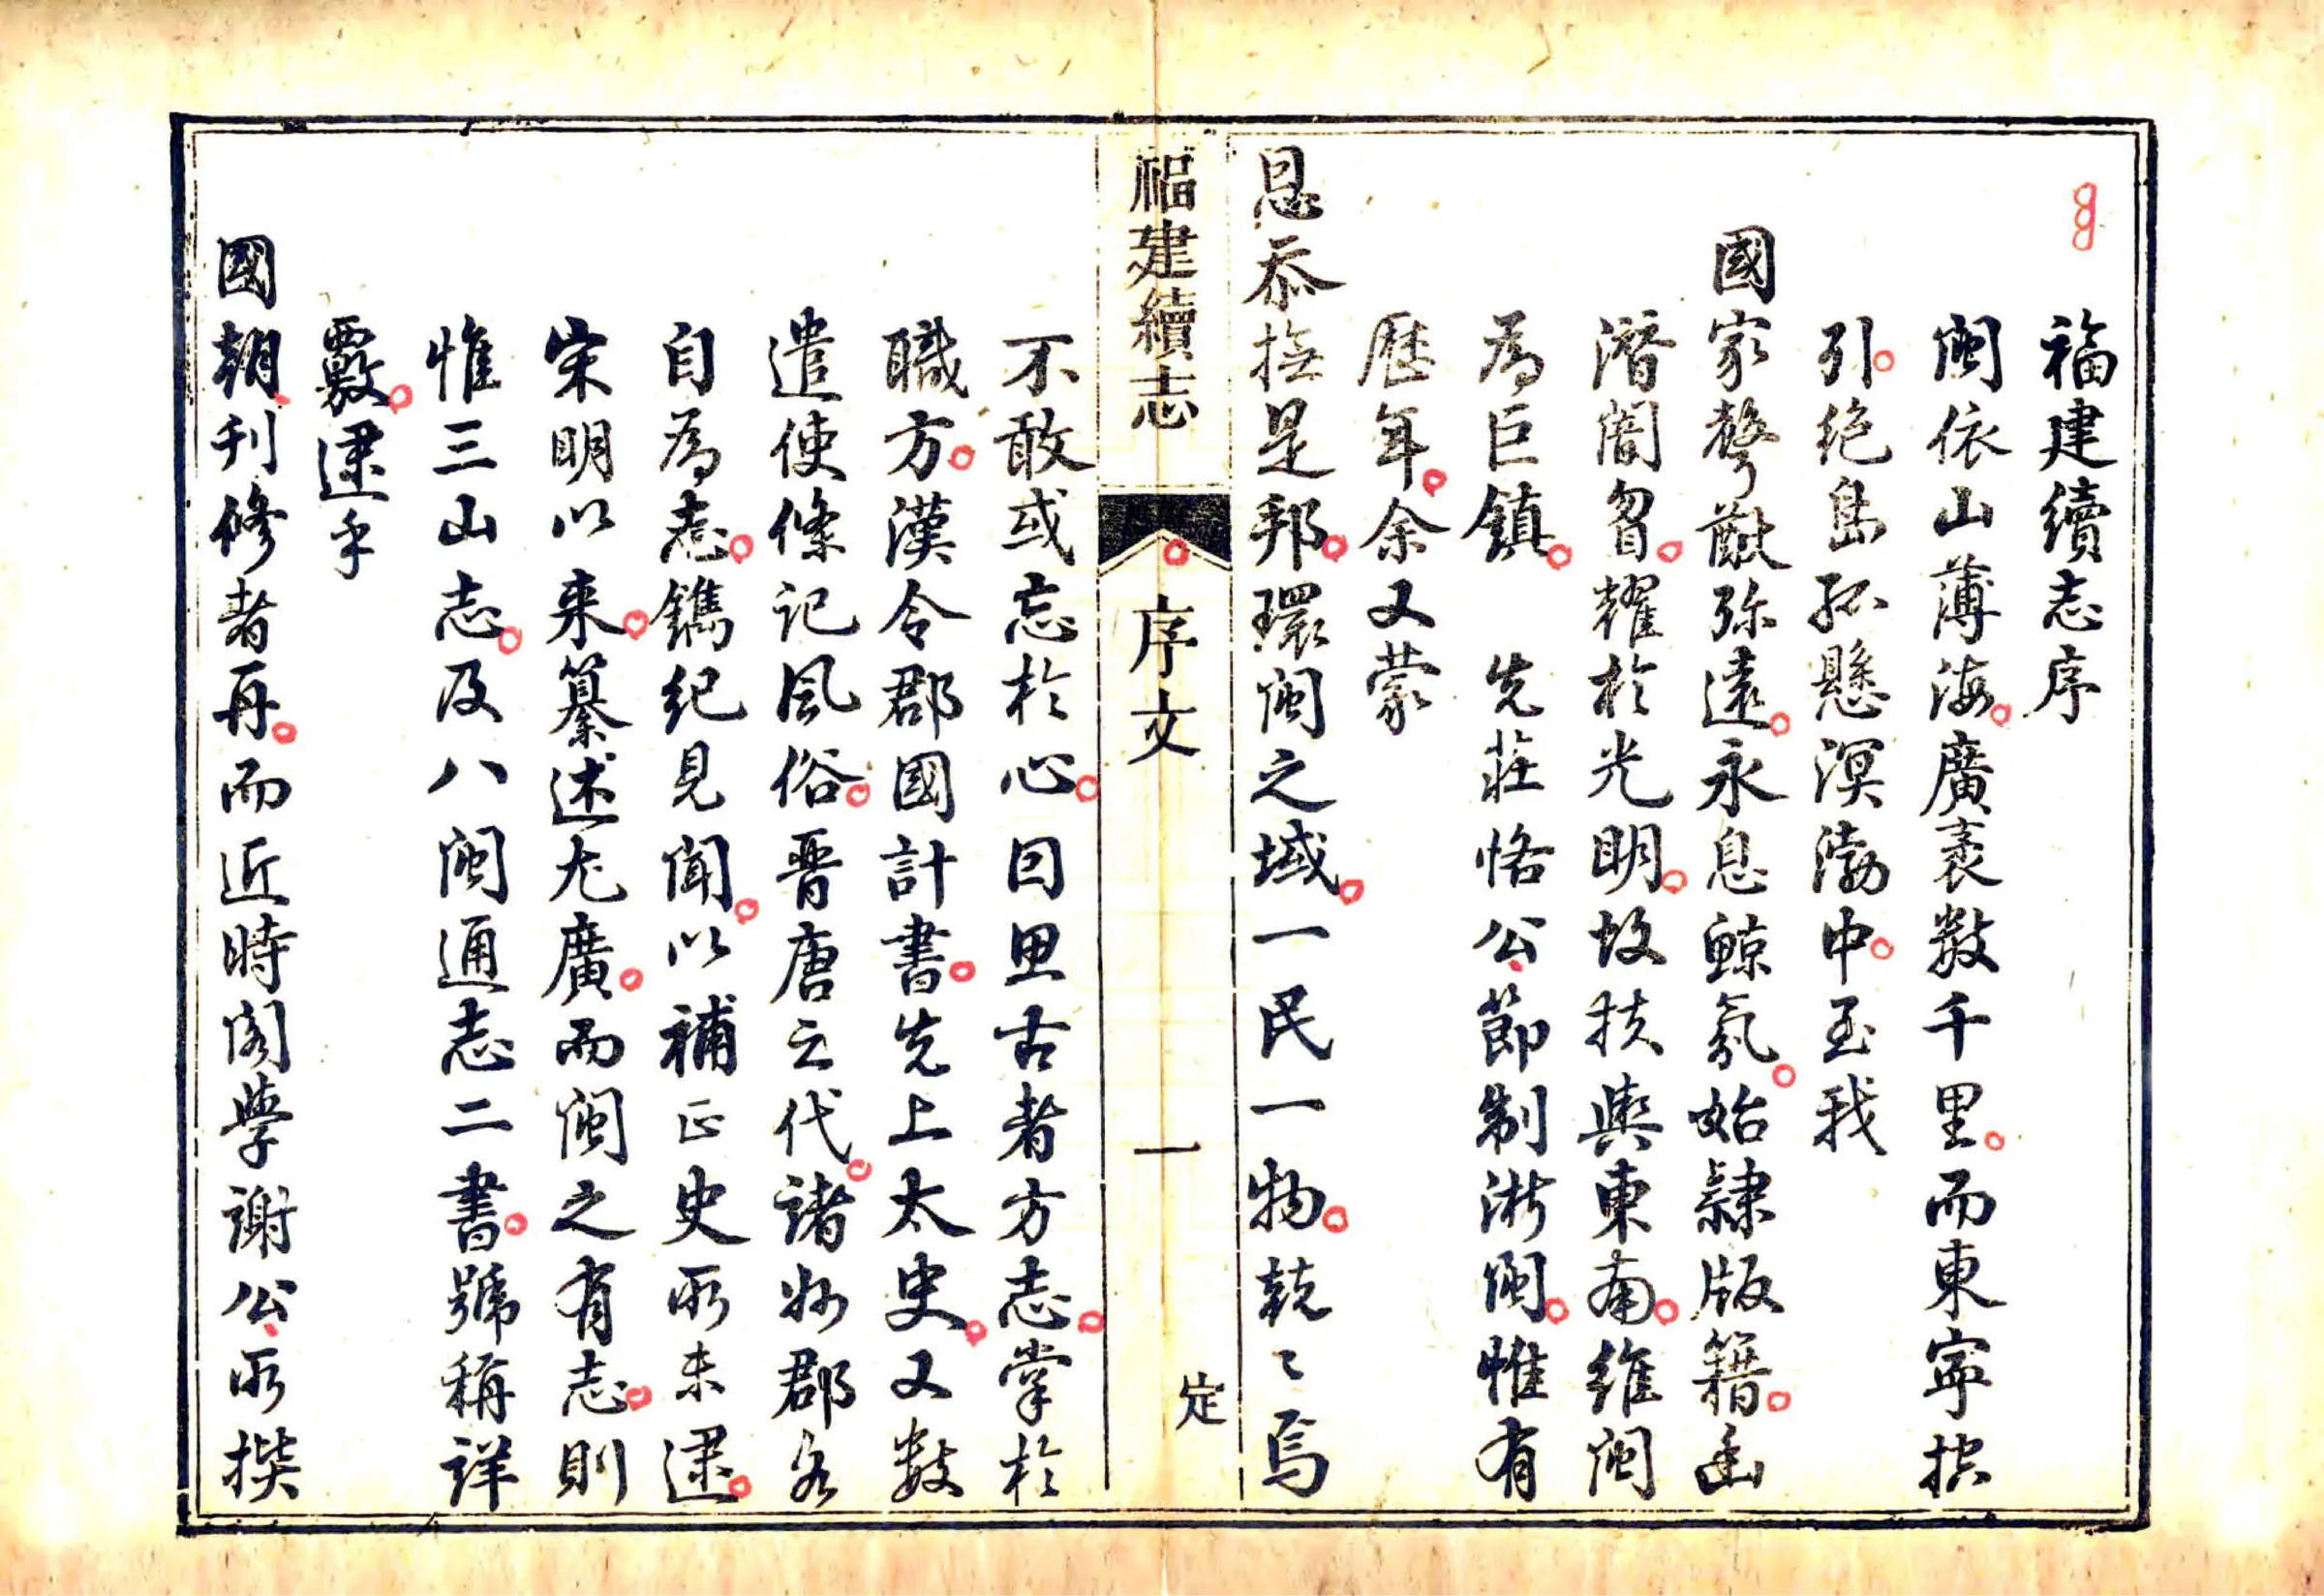 福建續志序
閩依山薄海廣袤數千里而東寧控
引絶島孤懸溟渤中至我
國家聲猷弥遠永息鯨氛始隷版籍幽
潛闇曶耀於光明故扶輿東南維閩
為巨鎮　先莊恪公節制浙閩惟有
歷年余又蒙
恩忝撫是邦環閩之域一民一物兢〻焉
福建續志
序文
一
定
不敢或忘於心因思古者方志掌於
職方漢令郡國計書先上太史又數
遣使條記風俗晋唐之代諸州郡各
自為志鐫紀見聞以補正史所未逮
宋明以来纂述尤廣而閩之有志則
惟三山志及八閩通志二書號稱詳
覈逮乎
國朝刊修者再而近時閣學謝公所撰